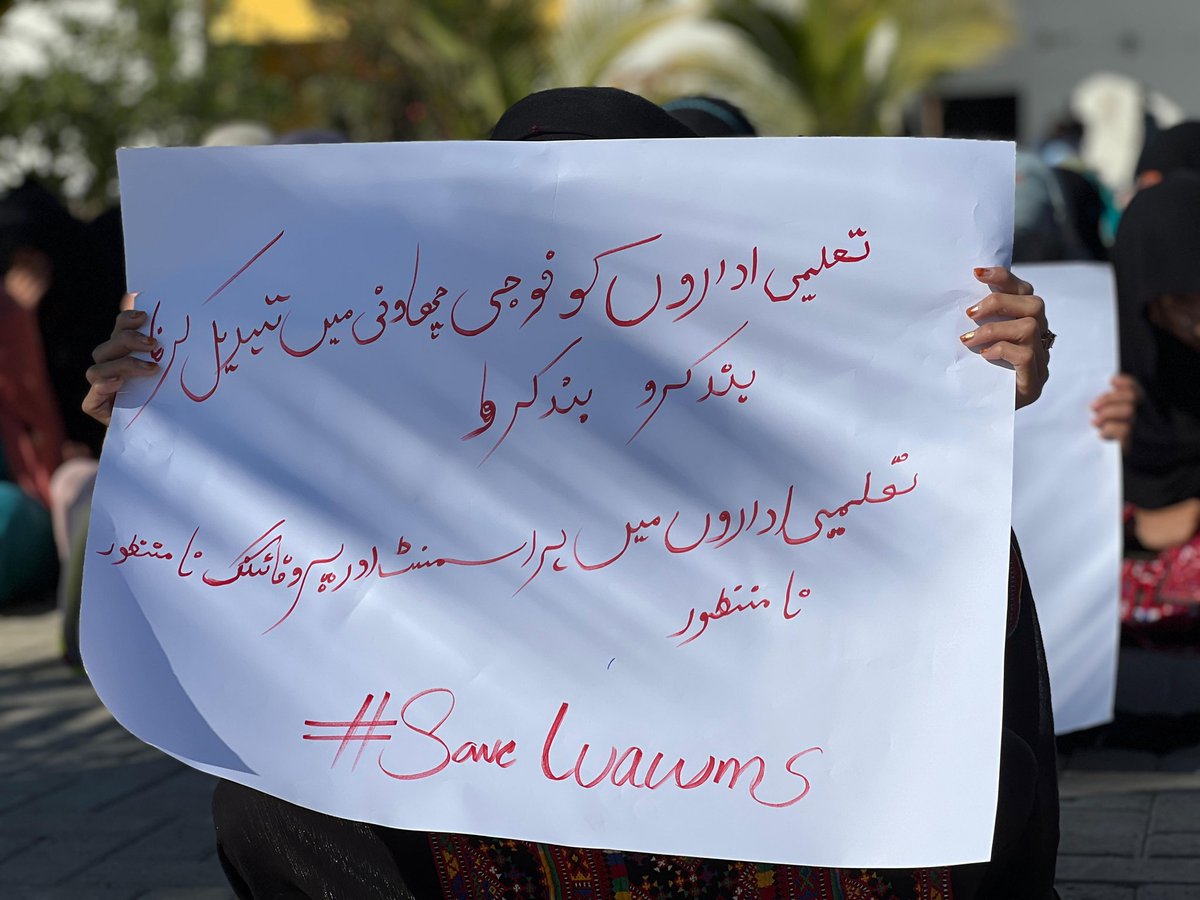 تعلیمی اداروں کو فوجی چھاونی میں تبدیل کرنا
بند کرو بند کرو
تعلیمی اداروں میں ہراسمنٹ اور پروفائلنگ نا منظور
نا منظور
#Save Luawms